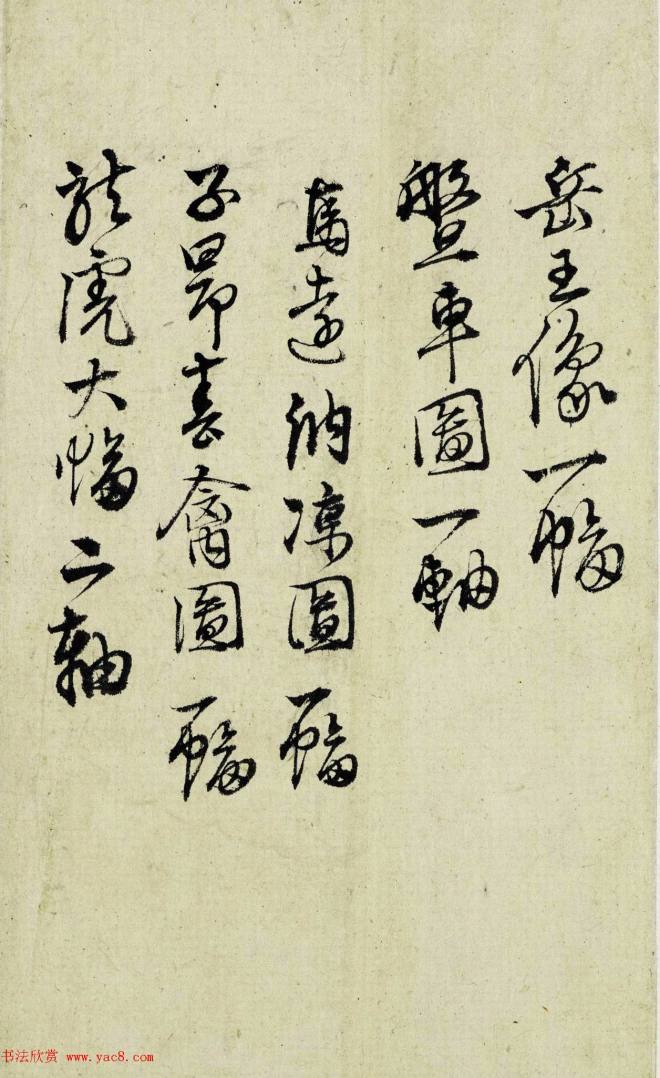 岳王像一幅
盤車圖一軸
馬遠納凉圖一幅
子昂春禽圖一幅
龍虎大幅二軸
书法欣赏 www.yac8.com